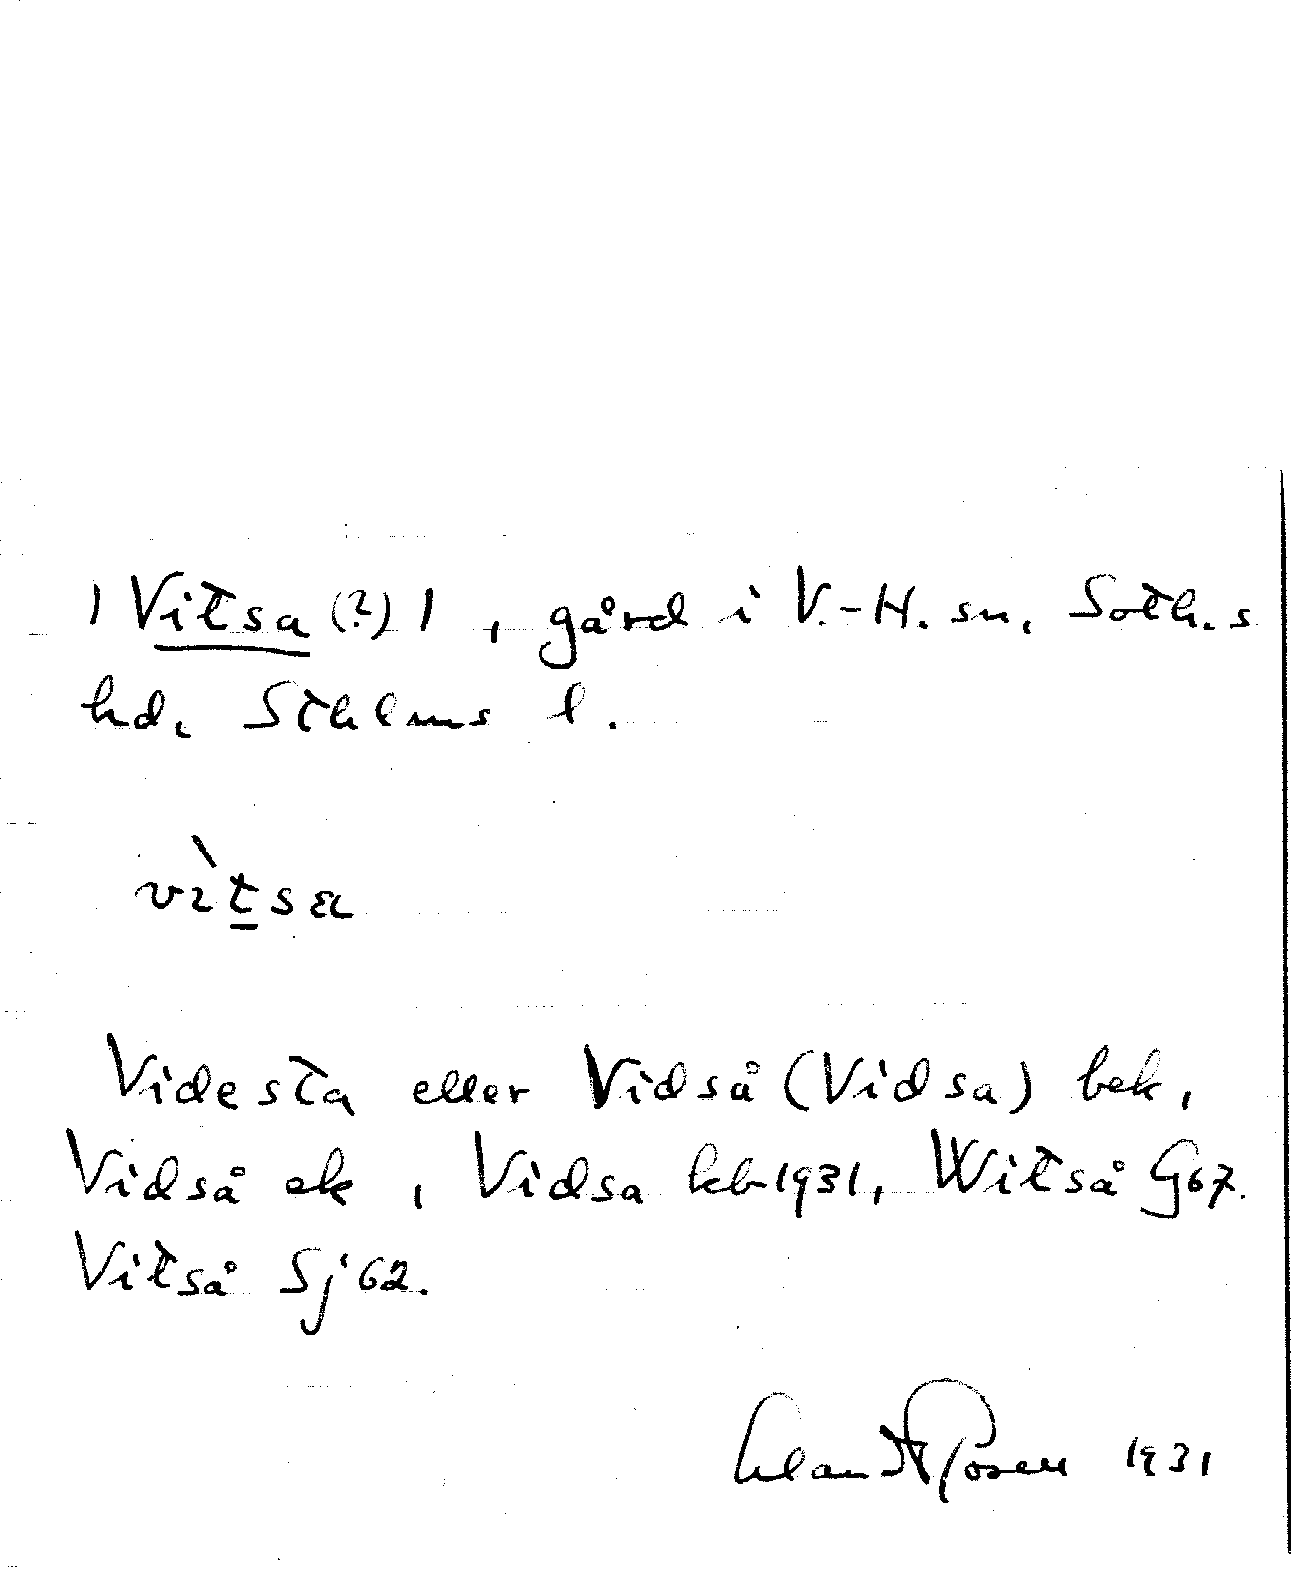 ) Vitsa (?) ) , gård i V.-H. sn, Soth.s
hd, Sthlms l.
vìtsa
Videsta eller Vidså (Vidsa) bek,
Vidså ek, Vidsa kb 1931, Witså G67.
Vitså Sj 62.
Rosell 1931